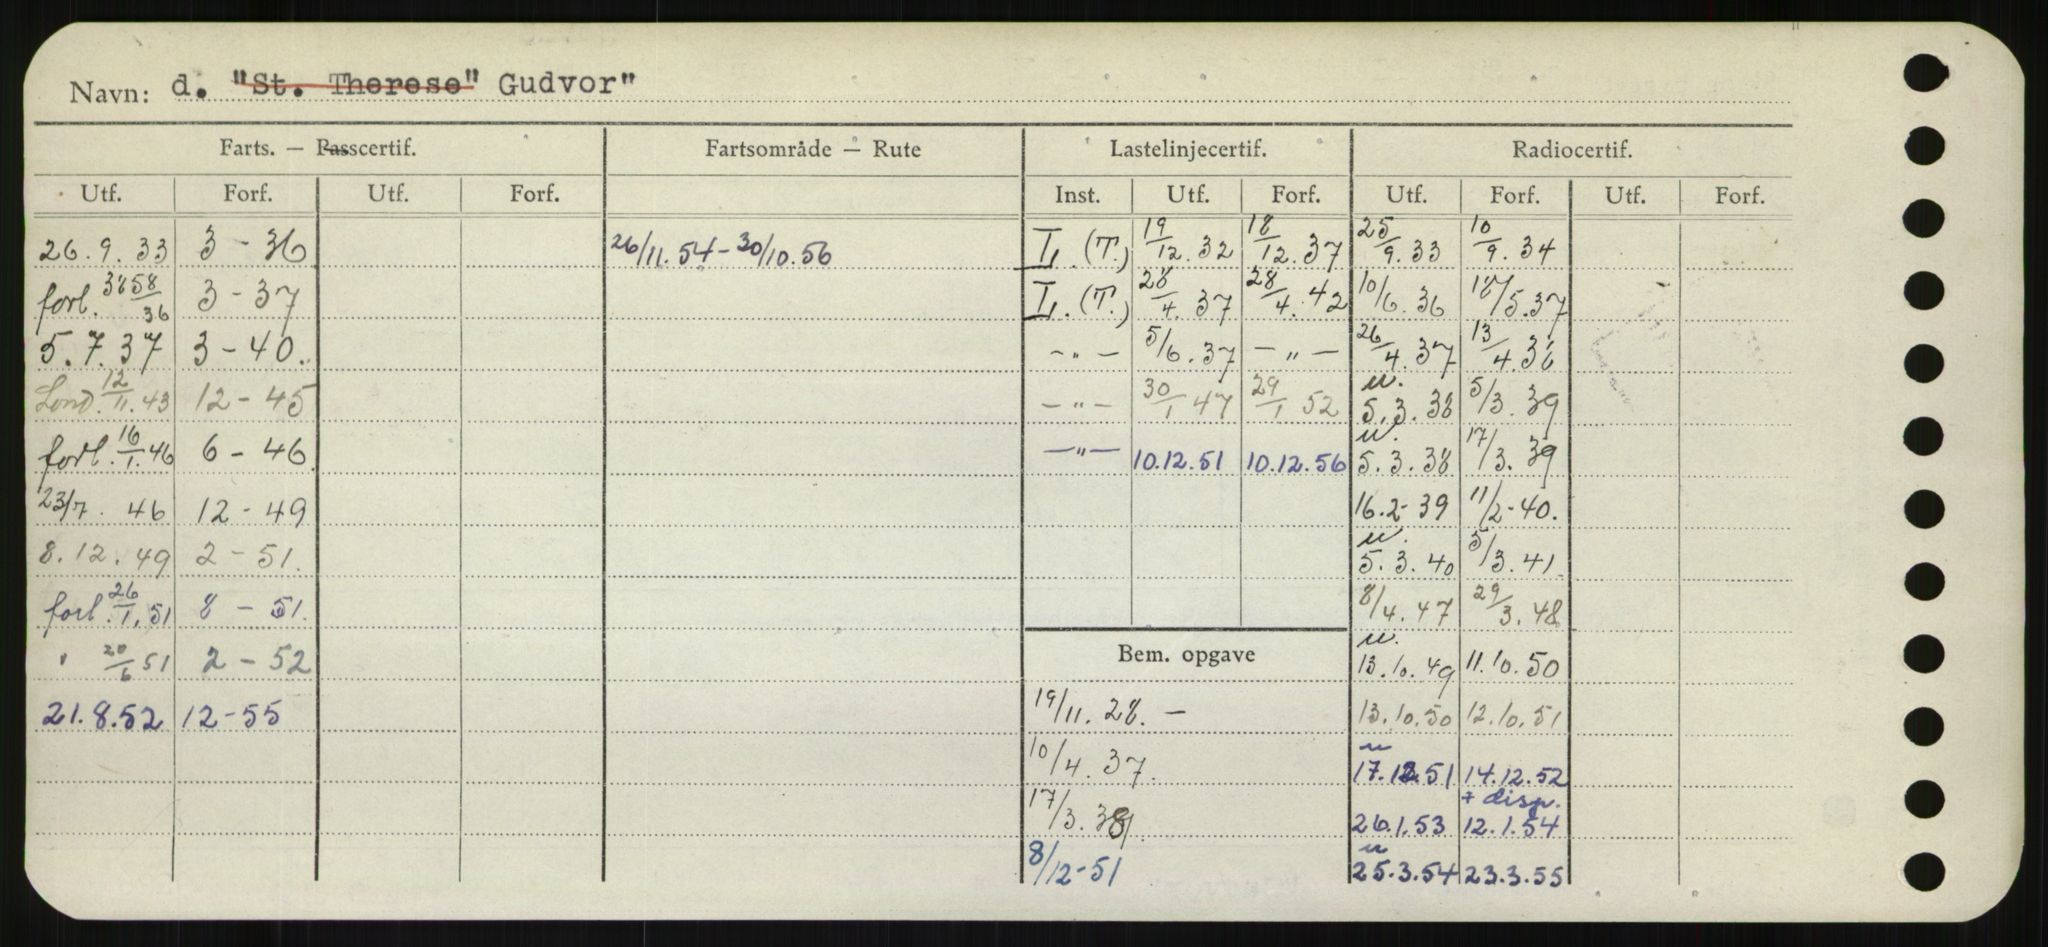 Navn: d. "St. Therese" Gudvor"
Farts. — Passcertif. Fartsområde — Rute Lastelinjecertif. Radiocertif.
Utf. Forf. Utf. Forf. Inst. Utf. Forf. Utf. Forf. Utf. Forf.
26.9.33 3-36 26/11.54-30/10.56 L.(T.) 19/12.32 18/12.37 25/9.33 10/9.34
forl. 36 3-37 L.(T.) 28/4.37 28/4.42 10/6.36 18/5.37
5.7.37 3-40. -"- 5/6.37 -"- 26/4.37 13/4.38
Lond. 12/11.43 12-45 -"- 30/1 47 29/1 52 u. 5.3.38 5/3.39
forl. 16/1.46 6-46 -"- 10.12.51 10.12.56 u. 5.3.38 17/3.39
23/7.46 12-49 16.2-39 11/2-40.
8.12.49 2-51. u. 5.3.40 5/3.41
forl. 26/1.51 8-51. 8/4.47 29/3.48
" 20/6 51 2-52 Bem. opgave u. 13.10.49 11.10.50
21.8.52 12-55 19/11.28.- 13.10.50 12.10.51
10/4.37. u 17.12.51 14.12.52
17/3.38 26.1.53 + disp. 12.1.54
8/12-51 u 25.3.54 23.3.55